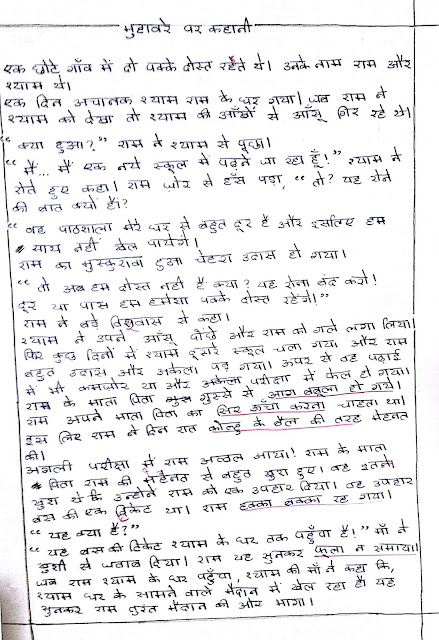 मुहावरे पर कहानी
एक छोटे गाँव में दो पक्के दोस्त रहते थे। उनके नाम राम और
श्याम थे।
एक दिन अचानक श्याम राम के घर गया। जब राम ने
श्याम को देखा तो श्याम की आँखों से आँसू गिर रहे थे।
“ क्या हुआ?” राम ने श्याम से पूछा।
“ मैं... मैं एक नये स्कूल में पढ़ने जा रहा हूँ!” श्याम ने
रोते हुए कहा। राम ज़ोर से हँस पड़ा, “ तो? यह रोने
की बात क्यों है?
“ वह पाठशाला मेरे घर से बहुत दूर है और इसलिए हम
साथ नहीं खेल पायेंगे।
राम का मुस्कुराता हुआ चेहरा उदास हो गया।
“ तो अब हम दोस्त नहीं हैं क्या? यह रोना बंद करो!
दूर या पास हम हमेशा पक्के दोस्त रहेंगे।”
राम ने बड़े विश्वास से कहा।
श्याम ने अपने आँसू पोंछे और राम को गले लगा लिया।
फिर कुछ दिनों में श्याम दूसरे स्कूल चला गया और राम
बहुत उदास और अकेला पड़ गया। ऊपर से वह पढ़ाई
में भी कमज़ोर था और परीक्षा में फेल हो गया।
राम के माता पिता गुस्से से आग बबूला हो गये।
राम अपने माता पिता का सिर ऊँचा करना चाहता था।
इस लिए राम ने दिन रात कोल्हू के बैल की तरह मेहनत
की।
अगली परीक्षा में राम अव्वल आया। राम के माता
पिता राम की मेहनत से बहुत खुश हुए। वह इतने
खुश थे कि उन्होंने राम को एक उपहार दिया। वह उपहार
बस की एक टिकेट था। राम हक्का बक्का रह गया।
“ यह क्या है?”
“ यह बस की टिकेट श्याम के घर तक पहुँचा है!” माँ ने
खुशी से जवाब दिया। राम यह सुनकर फूला न समाया।
जब राम श्याम के घर पहुँचा, श्याम की माँ ने कहा कि,
श्याम घर के सामने वाले मैदान में खेल रहा है। यह
सुनकर राम तुरंत मैदान की ओर भागा।